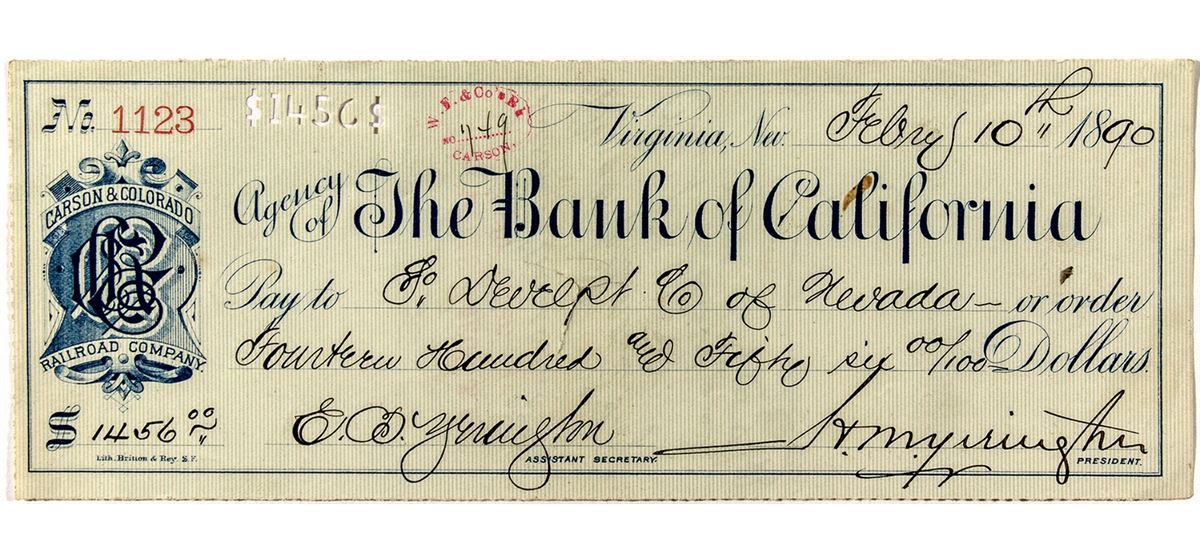 No. 1123
$1456$
W. F. & Co's Ex
NO. 749
CARSON.
Virginia, Nev. Febry 10th 1890
CARSON & COLORADO
RAILROAD COMPANY
Agency of The Bank of California
Pay to So. Develpt Co of Nevada — or order
Fourteen Hundred and Fifty six 00/100 Dollars.
$ 1456 00
E. B. Yerington
H M Yerington
ASSISTANT SECRETARY.
PRESIDENT.
Lith. Britton & Rey. S.F.